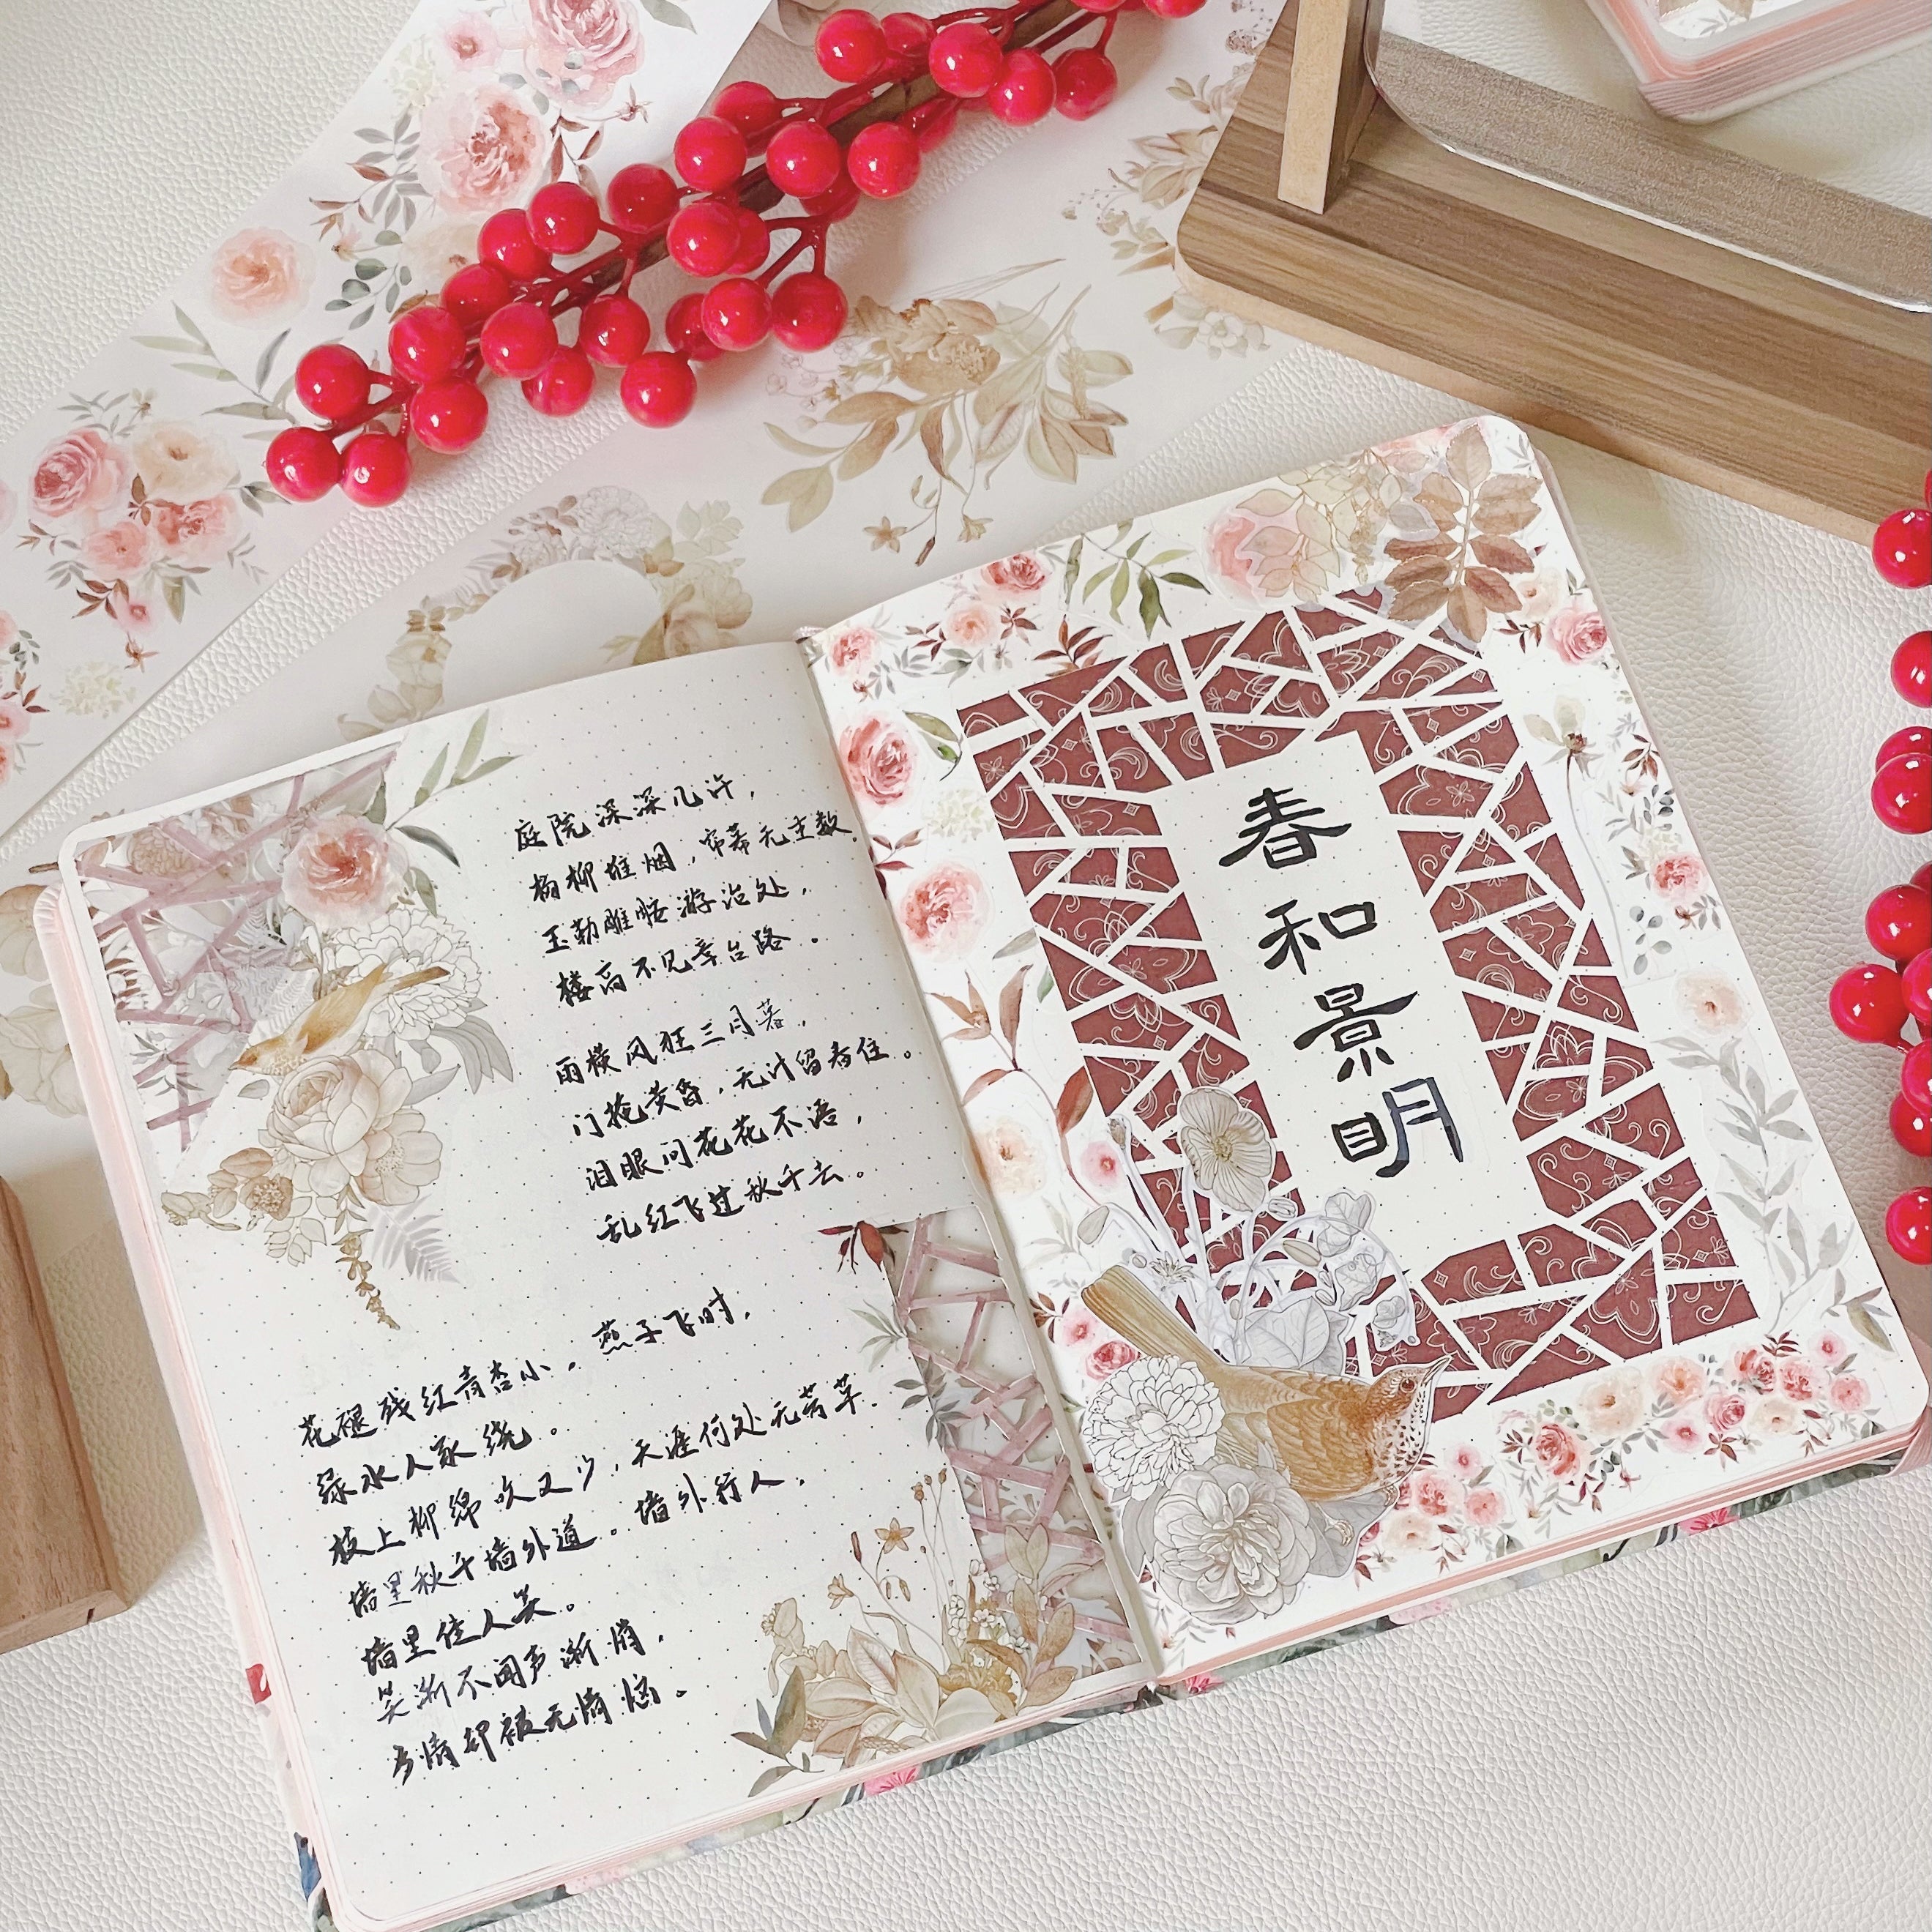 庭院深深几许，
杨柳堆烟，帘幕无重数。
玉勒雕鞍游冶处，
楼高不见章台路。
雨横风狂三月暮，
门掩黄昏，无计留春住。
泪眼问花花不语，
乱红飞过秋千去。
花褪残红青杏小，燕子飞时，
绿水人家绕。
枝上柳绵吹又少，天涯何处无芳草。
墙里秋千墙外道。墙外行人，
墙里佳人笑。
笑渐不闻声渐悄，
多情却被无情恼。
春和景明